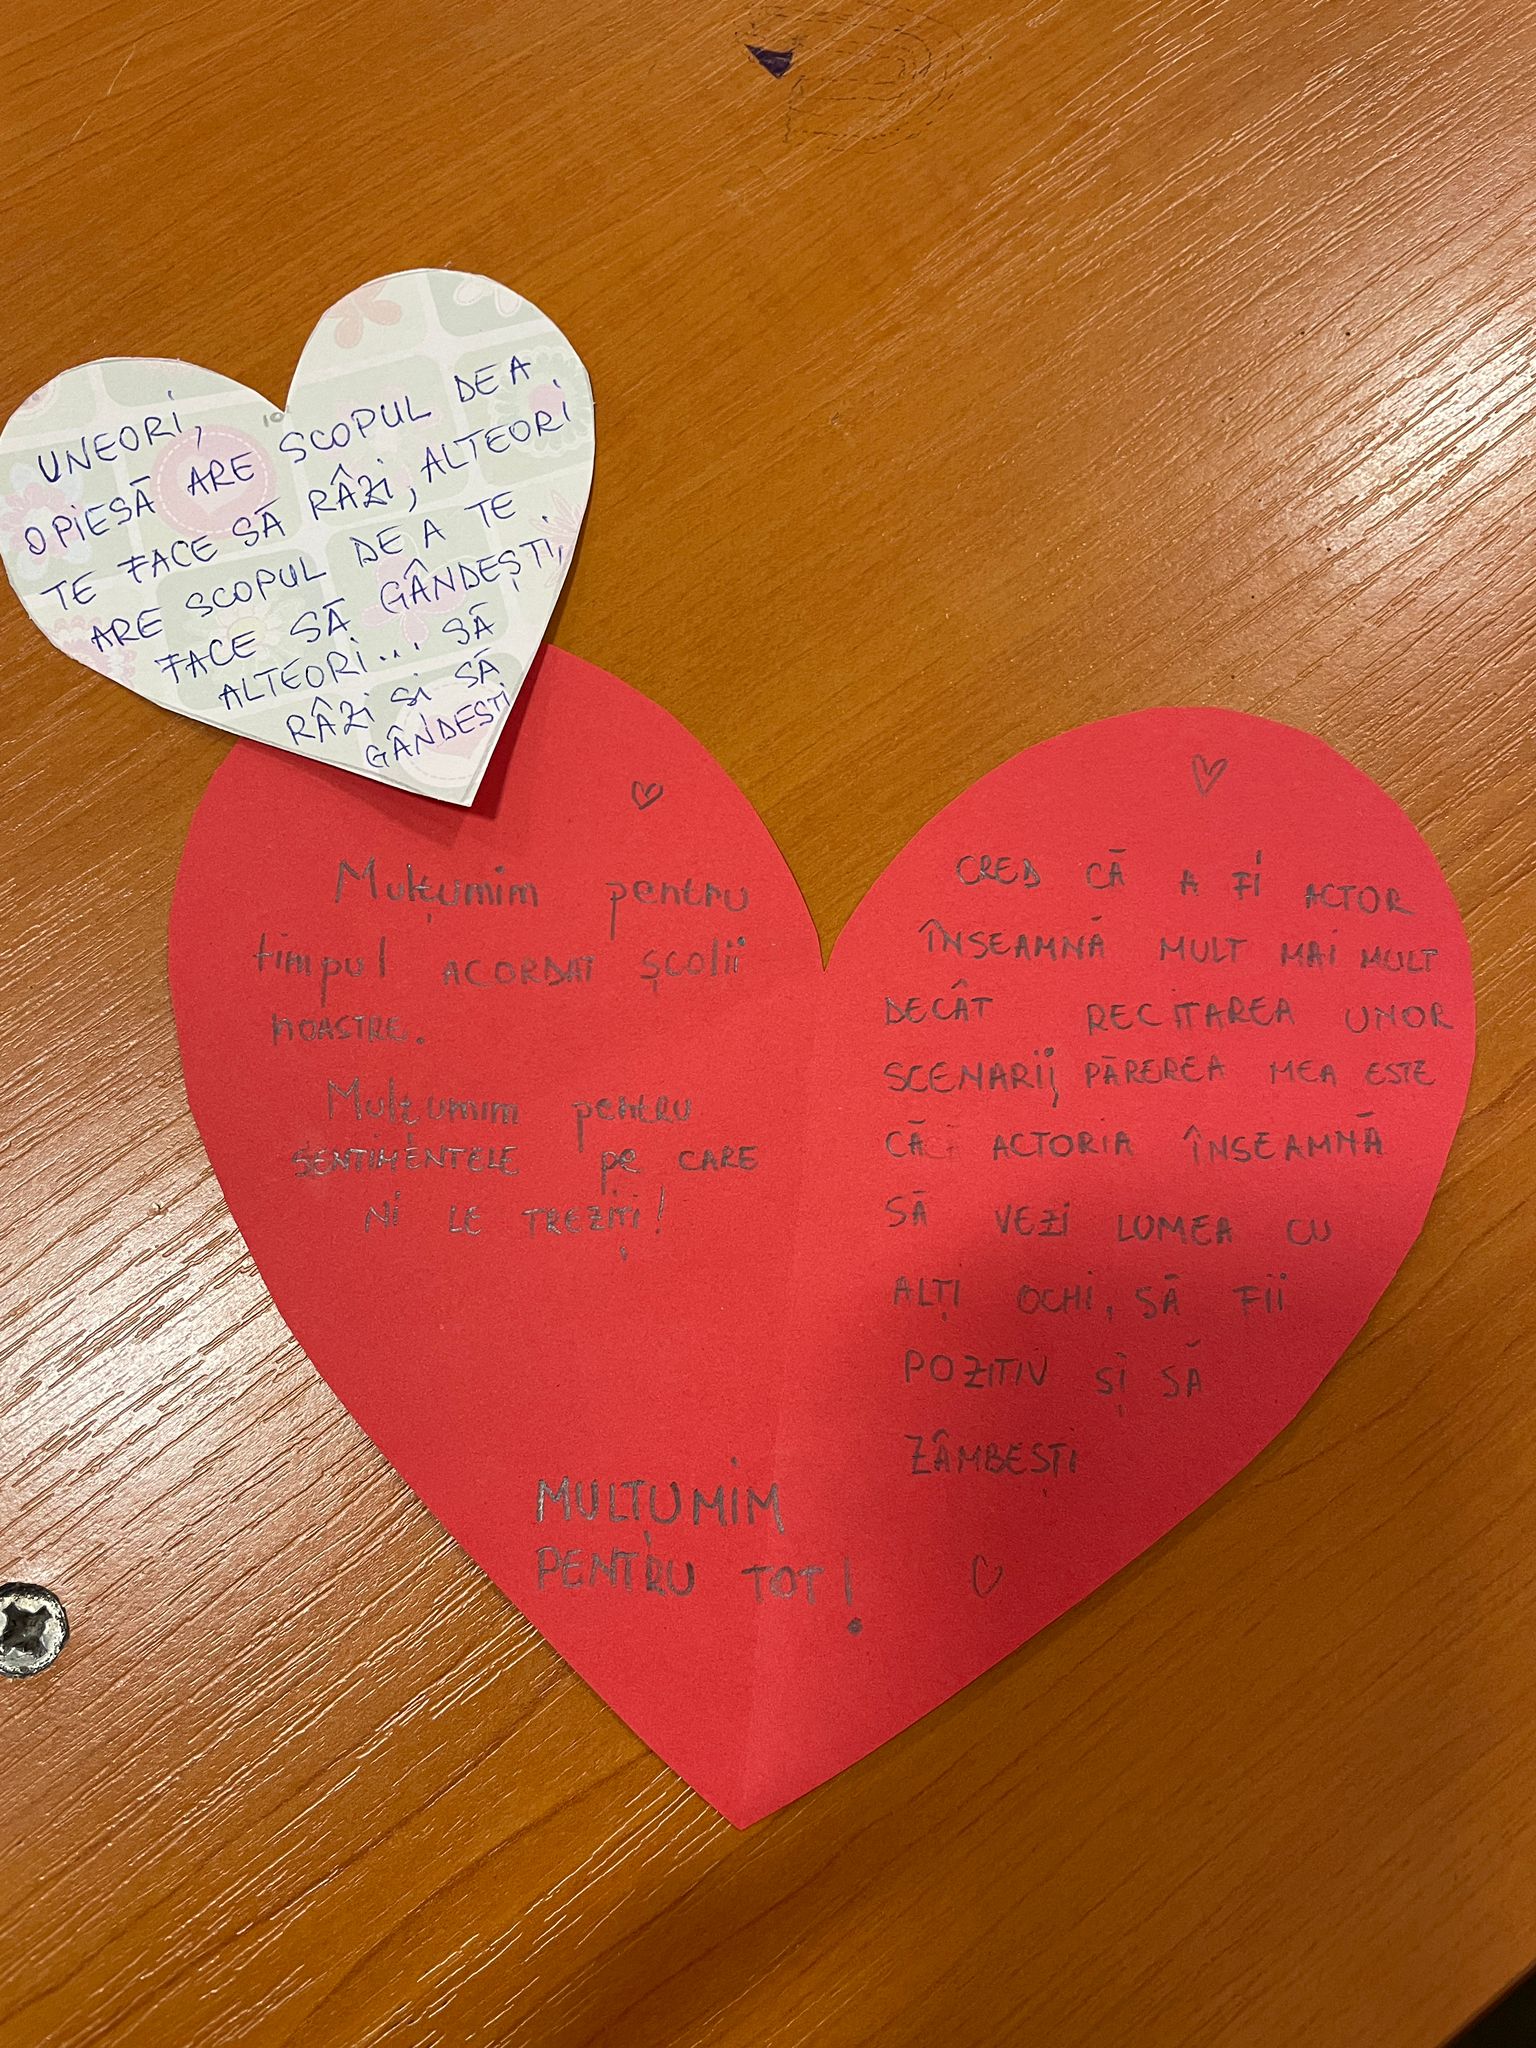 UNEORI,
O PIESĂ ARE SCOPUL DE A
TE FACE SĂ RÂZI, ALTEORI
ARE SCOPUL DE A TE
FACE SĂ GÂNDEȘTI,
ALTEORI... SĂ
RÂZI SI SĂ
GÂNDESTI
Mulțumim pentru
timpul ACORDAT școlii
NOASTRE.
Mulțumim pentru
SENTIMENTELE pe CARE
NI LE TREZIȚI!
CRED CĂ A FI ACTOR
ÎNSEAMNĂ MULT MAI MULT
DECÂT RECITAREA UNOR
SCENARII, PĂREREA MEA ESTE
CĂ ACTORIA ÎNSEAMNĂ
SĂ VEZI LUMEA CU
ALȚI OCHI, SĂ FII
POZITIV ȘI SĂ
ZÂMBEȘTI
MULȚUMIM
PENTRU TOT!